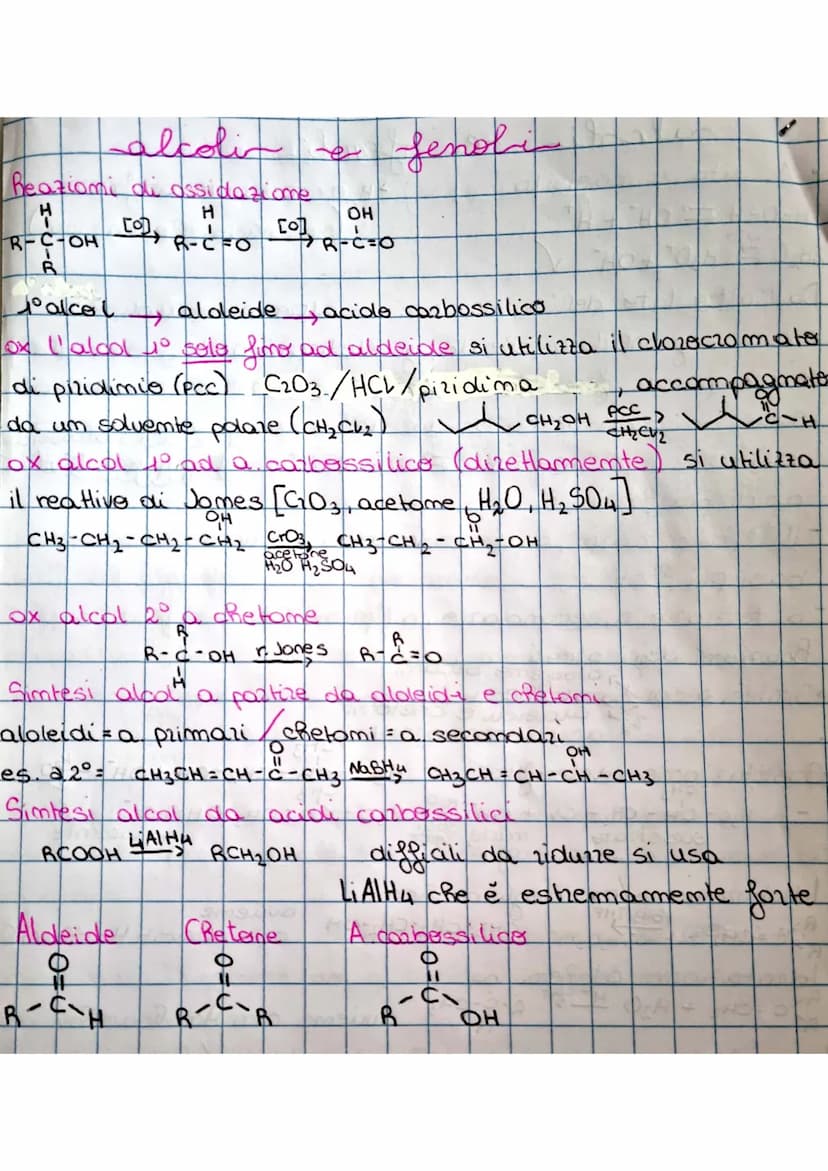 alcoli e fenoli
Reazioni di ossidazione
H H OH
R-C-OH [O]→ R-C=O [O]→ R-C=O
R
1° alcol → aldeide → acido carbossilico
ox l'alcol 1° solo fino ad aldeide si utilizza il clorocromato
di piridinio (PCC) CrO3/HCl/piridina , accompagnato
da un solvente polare (CH2Cl2) CH2OH PCC→ CH2Cl2 O C-H
ox alcol 1° ad a. carbossilico (direttamente) si utilizza
il reattivo di Jones [CrO3, acetone, H2O, H2SO4]
OH O
CH3-CH2-CH2-CH2 CrO3, CH3-CH2-CH2-OH
acetone
H2O H2SO4
ox alcol 2° a chetone
R R
R-C-OH r. Jones→ R-C=O
H
Sintesi alcol a partire da aldeidi e chetoni
aldeidi = a. primari / chetoni = a. secondari
O OH
es. a 2°= CH3CH=CH-C-CH3 NaBH4→ CH3CH=CH-CH-CH3
Sintesi alcol da acidi carbossilici
RCOOH LiAlH4→ RCH2OH difficili da ridurre si usa
LiAlH4 che è estremamente forte
Aldeide Chetone A. carbossilico
O O O
R-C-H R-C-R R-C-OH